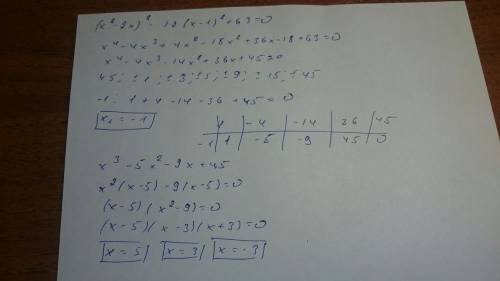 (x² - 2x)² - 18(x-1)² + 63 = 0
x⁴ - 4x³ + 4x² - 18x² + 36x - 18 + 63 = 0
x⁴ - 4x³ - 14x² + 36x + 45 = 0
45; ±1; ±3; ±5; ±9; ±15; ±45
-1; 1 + 4 - 14 - 36 + 45 = 0
x₁ = -1
1 | -4 | -14 | 36 | 45
-1 | 1 | -5 | -9 | 45 | 0
x³ - 5x² - 9x + 45
x²(x-5) - 9(x-5) = 0
(x-5)(x²-9) = 0
(x-5)(x-3)(x+3) = 0
x = 5 x = 3 x = -3